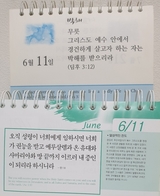 6월 11일
무릇
그리스도 예수 안에서
경건하게 살고자 하는 자는
박해를 받으리라
(딤후 3:12)
June 6/11
오직 성령이 너희에게 임하시면 너희
가 권능을 받고 예루살렘과 온 유대와
사마리아와 땅 끝까지 이르러 내 증인
이 되리라 하시니라